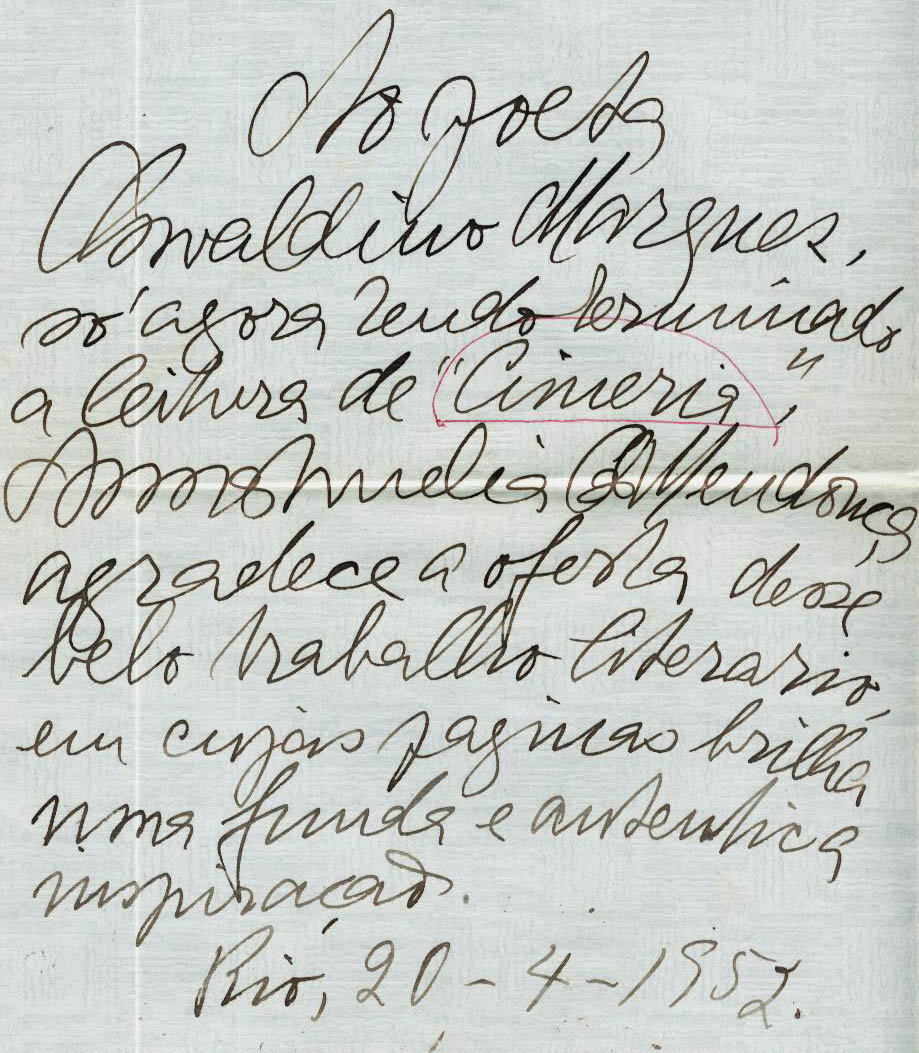 Ao poeta
Oswaldino Marques,
só agora tendo terminado
a leitura de "Cimeria",
Anna Amelia C de Mendonça
agradece a oferta desse
belo trabalho literario,
em cujas paginas brilha
uma funda e autentica
inspiração.
Rio, 20-4-1952.